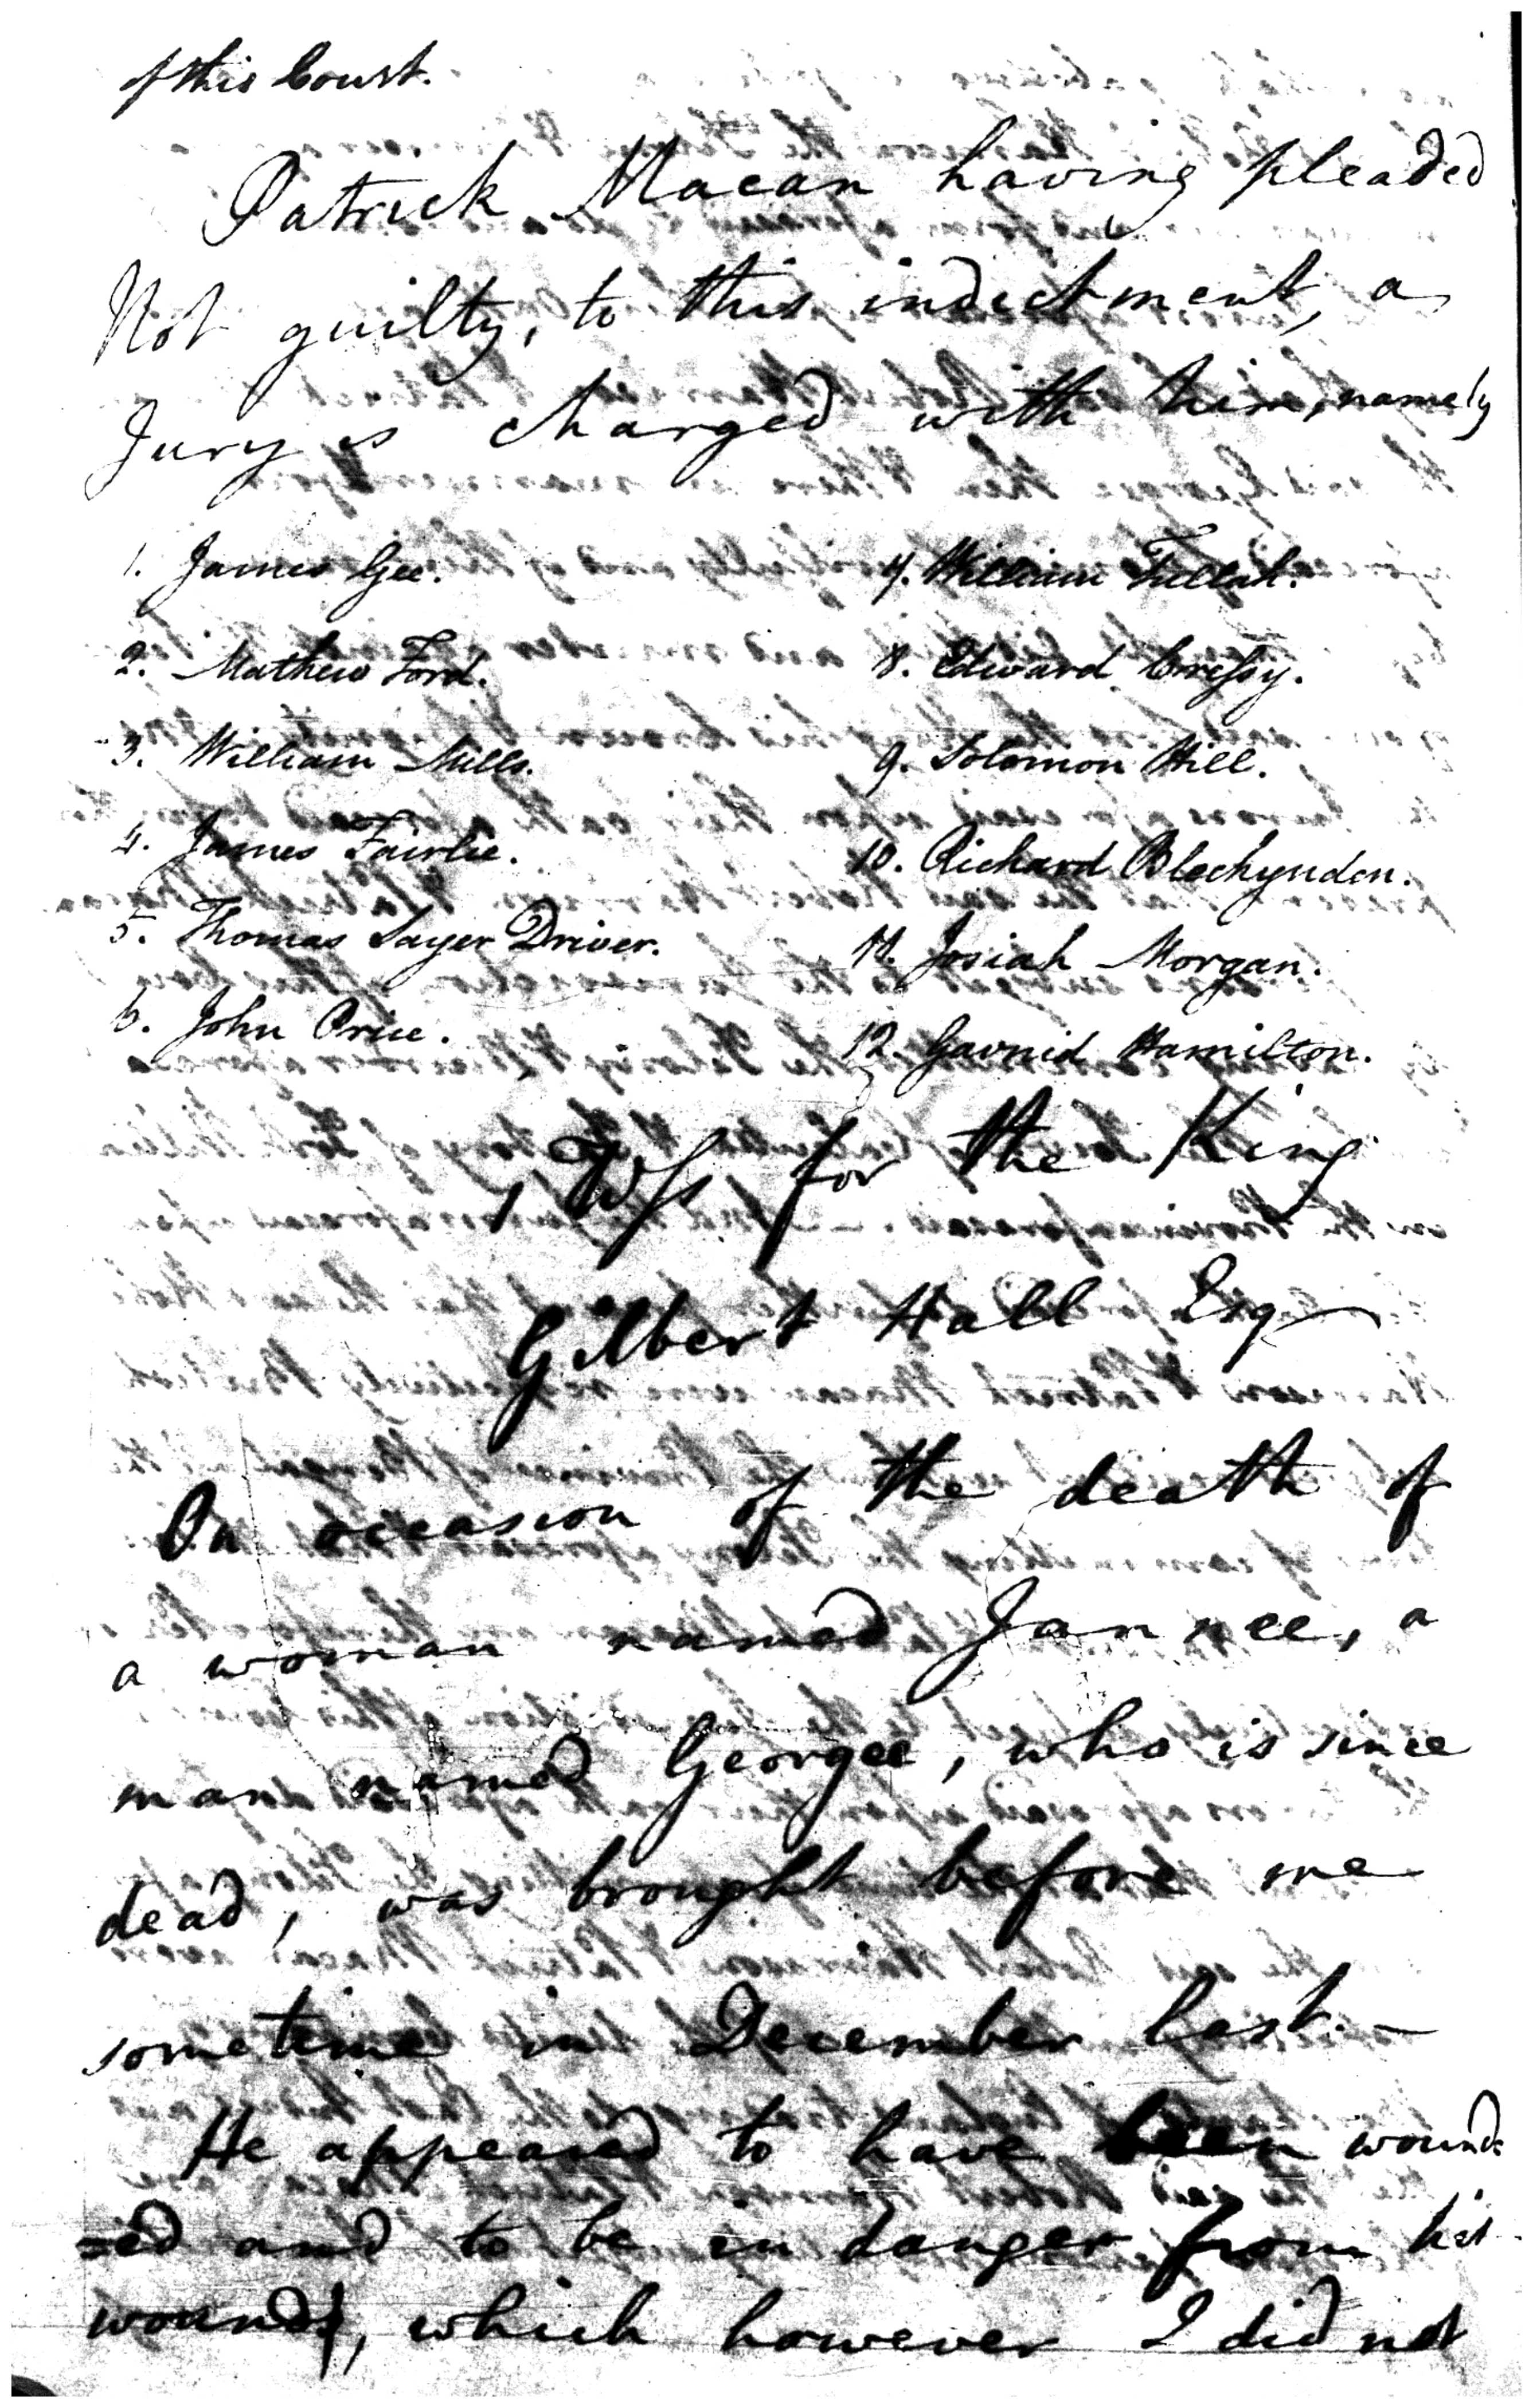 of this Court.
Patrick Macan having pleaded
Not guilty, to this indictment, a
Jury is charged with him, namely
1. James Gee.
2. Mathew Ford.
3. William Mills.
4. James Fairlie.
5. Thomas Sayer Driver.
6. John Price.
7. William Tullah.
8. Edward Cressy.
9. Solomon Hill.
10. Richard Blechynden.
11. Josiah Morgan.
12. Gavnid Hamilton.
1 Wss for the King
Gilbert Hall Esq
On occasion of the death of
a woman named Jannee, a
man named Georgee, who is since
dead, was brought before me
sometime in December last. —
He appeared to have been wound
=ed and to be in danger from his
wounds, which however I did not